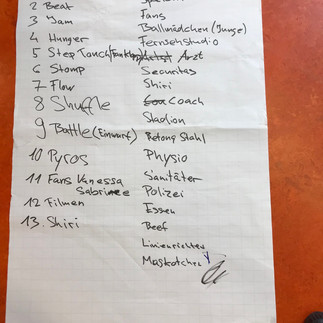 2 Beat
3 Jam
4 Hunger
5 Step Touch
6 Stomp
7 Flow
8 Shuffle
9 Battle (Einwurf)
10 Pyros
11 Fans Vanessa
Sabrine
12 Filmen
13. Shiri
Fans
Ballmädchen (Junge)
Fernsehstudio
Arzt
Securitas
Shiri
Coach
Stadion
Beton, Stahl
Physio
Sanitäter
Polizei
Essen
Beef
Linienrichter
Maskotchen